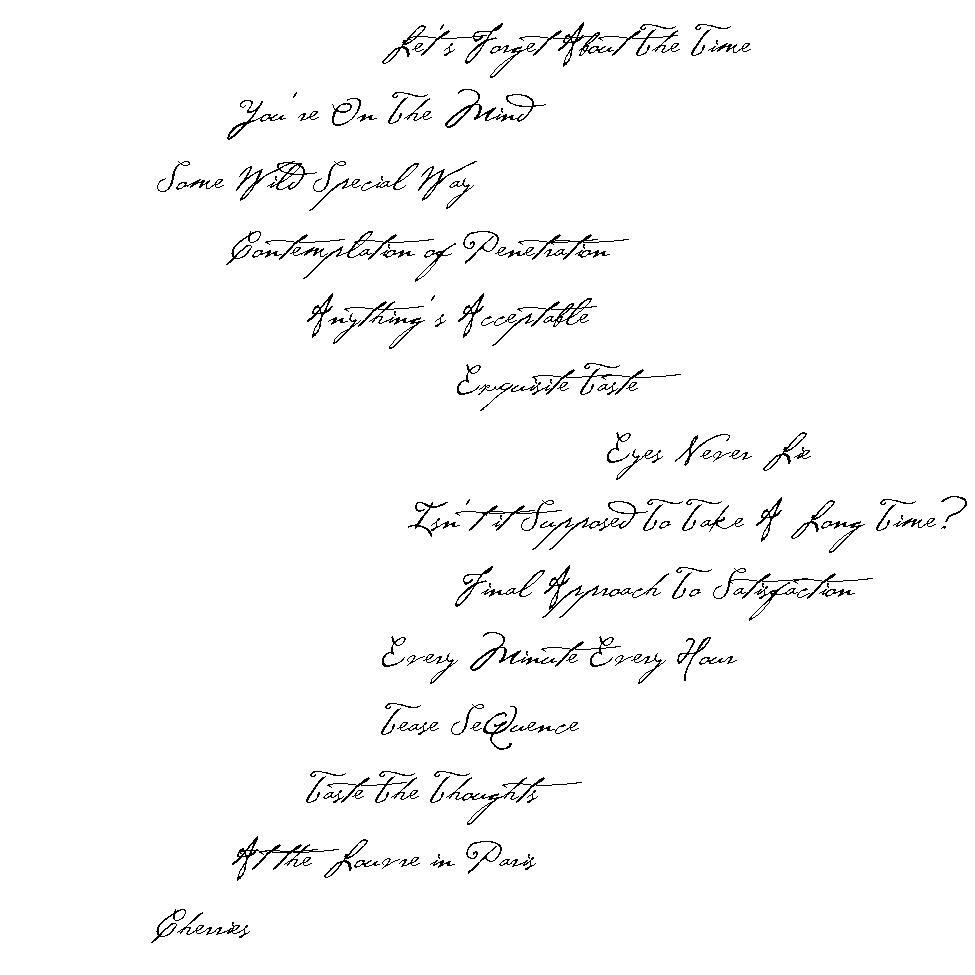 Let's Forget About The Time
You're On The Mind
Some Wild Special Way
Contemplation of Penetration
Anything's Acceptable
Exquisite Taste
Eyes Never Lie
Isn't it Supposed To Take A Long Time?
Final Approach To Satisfaction
Every Minute Every Hour
Tease SeQuence
Taste The Thoughts
At the Louvre in Paris
Cherries